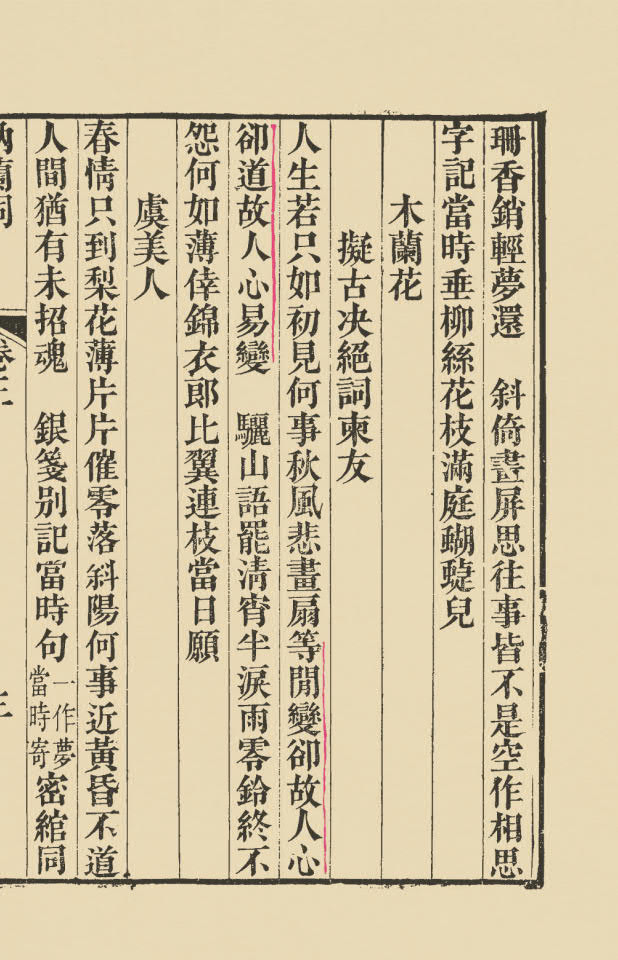 珊香銷輕夢還　斜倚畫屏思往事皆不是空作相思
字記當時垂柳絲花枝滿庭蝴蝶兒
木蘭花
擬古决絕詞柬友
人生若只如初見何事秋風悲畫扇等閒變卻故人心
卻道故人心易變　驪山語罷清宵半淚雨零鈴終不
怨何如薄倖錦衣郎比翼連枝當日願
虞美人
春情只到梨花薄片片催零落斜陽何事近黃昏不道
人間猶有未招魂　銀箋别記當時句一作夢當時寄密綰同